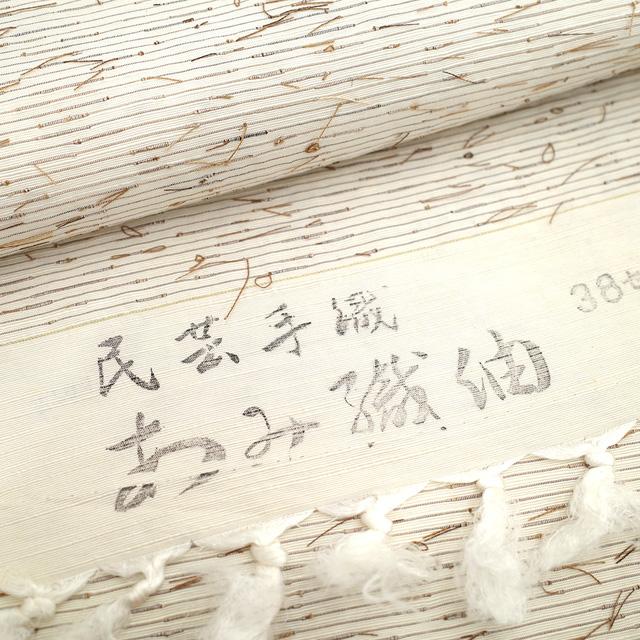 民芸手織
み織紬
38